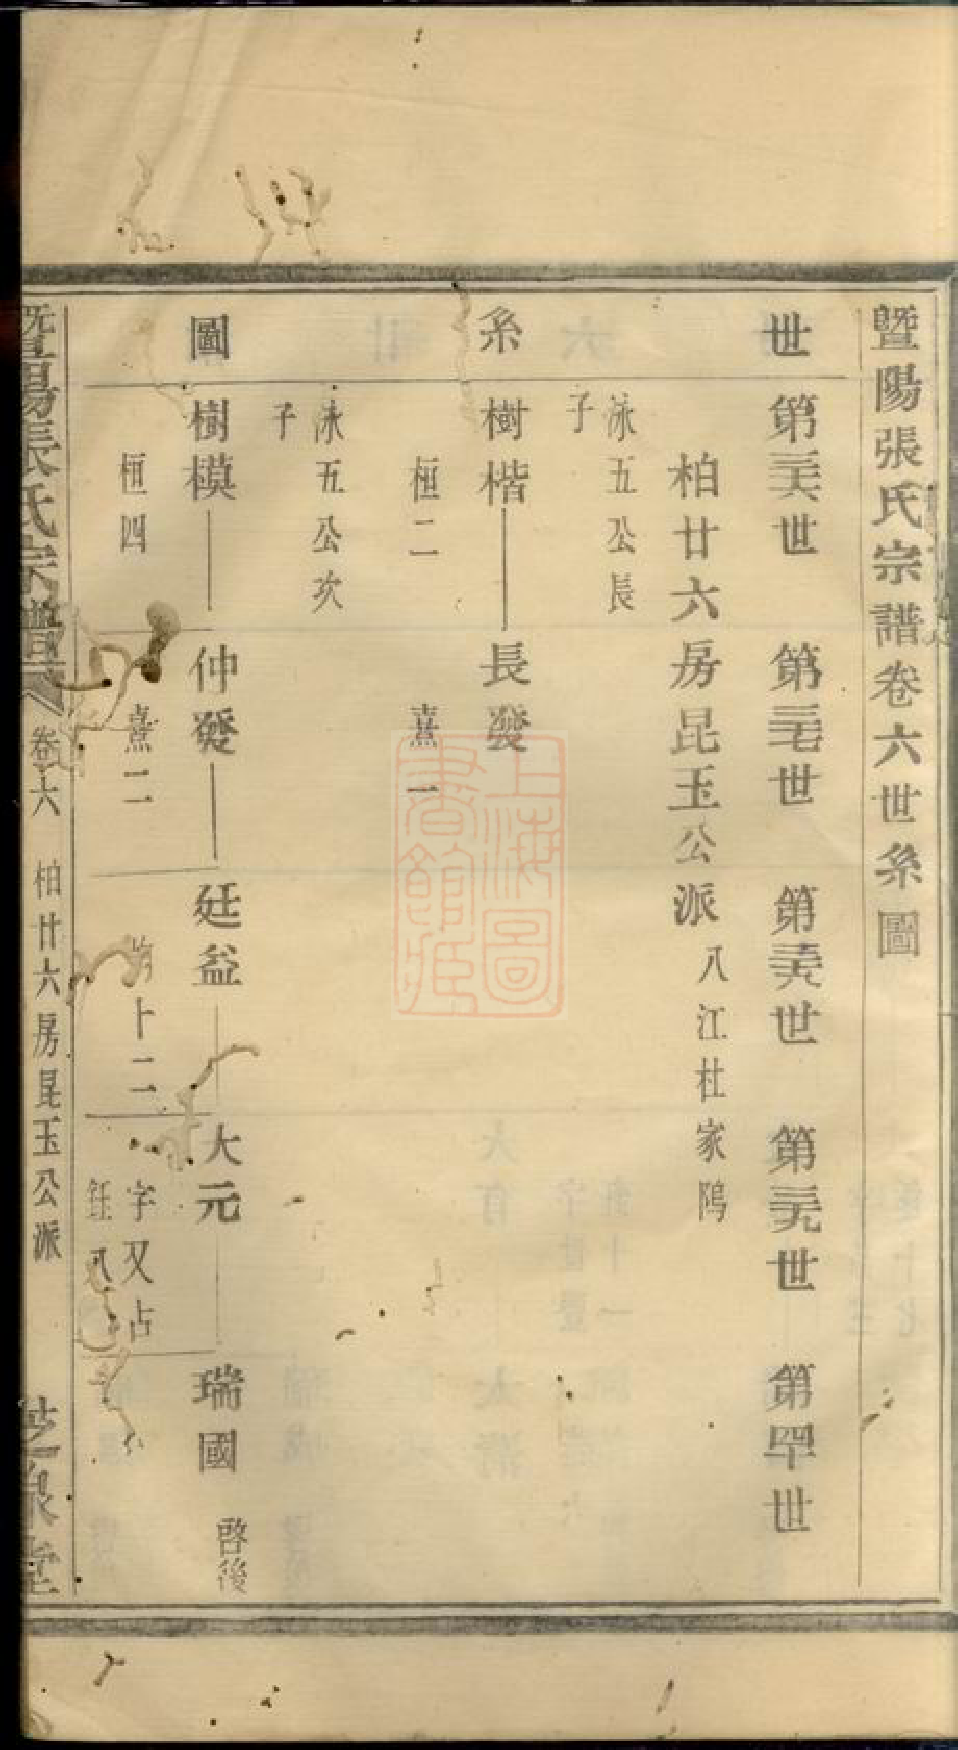 暨陽張氏宗譜卷六世系圖
世系圖
第三十六世 第三十七世 第三十八世 第三十九世 第四十世
柏廿六房昆玉公派 八江杜家隖
泳五公長子
樹楷 桓二
長發 熹一
泳五公次子
樹模 桓四
仲發 熹二
廷益 十二
大元 字又占 鈺八
瑞國 啓後
暨陽張氏宗譜 卷六 柏廿六房昆玉公派
上海圖書館藏